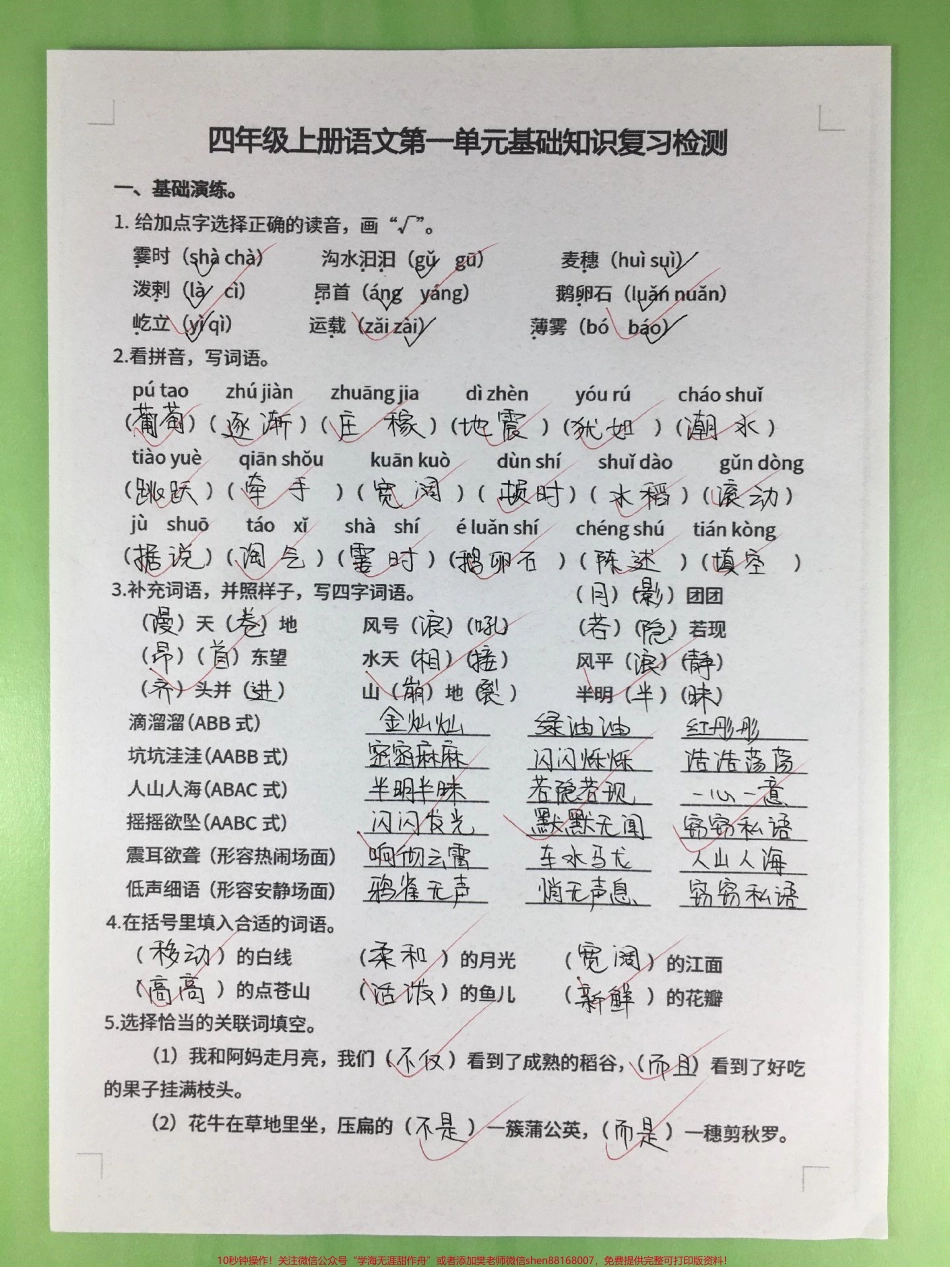 四年级上册语文第一单元基础知识复习检测
一、基础演练。
1. 给加点字选择正确的读音，画“√”。
霎时（shà chà） 沟水汩汩（gǔ gū） 麦穗（huì suì）
泼剌（là cì） 昂首（áng yáng） 鹅卵石（luǎn nuǎn）
屹立（yì qì） 运载（zǎi zài） 薄雾（bó báo）
2.看拼音，写词语。
pú tao zhú jiàn zhuāng jia dì zhèn yóu rú cháo shuǐ
（葡萄）（逐渐）（庄稼）（地震）（犹如）（潮水）
tiào yuè qiān shǒu kuān kuò dùn shí shuǐ dào gǔn dòng
（跳跃）（牵手）（宽阔）（顿时）（水稻）（滚动）
jù shuō táo xǐ shà shí é luǎn shí chéng shú tián kòng
（据说）（淘气）（霎时）（鹅卵石）（陈述）（填空）
3.补充词语，并照样子，写四字词语。 （月）（影）团团
（漫）天（卷）地 风号（浪）（吼） （若）（隐）若现
（昂）（首）东望 水天（相）（接） 风平（浪）（静）
（齐）头并（进） 山（崩）地（裂） 半明（半）（昧）
滴溜溜（ABB 式） 金灿灿 绿油油 红彤彤
坑坑洼洼（AABB 式） 密密麻麻 闪闪烁烁 浩浩荡荡
人山人海（ABAC 式） 半明半昧 若隐若现 一心一意
摇摇欲坠（AABC 式） 闪闪发光 默默无闻 窃窃私语
震耳欲聋（形容热闹场面） 响彻云霄 车水马龙 人山人海
低声细语（形容安静场面） 鸦雀无声 悄无声息 窃窃私语
4.在括号里填入合适的词语。
（移动）的白线 （柔和）的月光 （宽阔）的江面
（高高）的点苍山 （活泼）的鱼儿 （新鲜）的花瓣
5.选择恰当的关联词填空。
（1）我和阿妈走月亮，我们（不仅）看到了成熟的稻谷，（而且）看到了好吃
的果子挂满枝头。
（2）花牛在草地里坐，压扁的（不是）一簇蒲公英，（而是）一穗剪秋罗。
10秒钟操作！关注微信公众号“学海无涯甜作舟”或者添加樊老师微信shen88168007，免费提供完整可打印版资料！